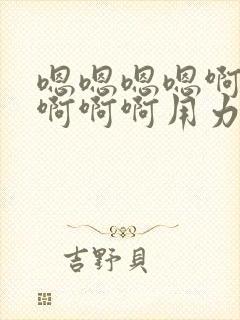 嗯嗯嗯嗯啊
啊啊啊用力
吉野貝